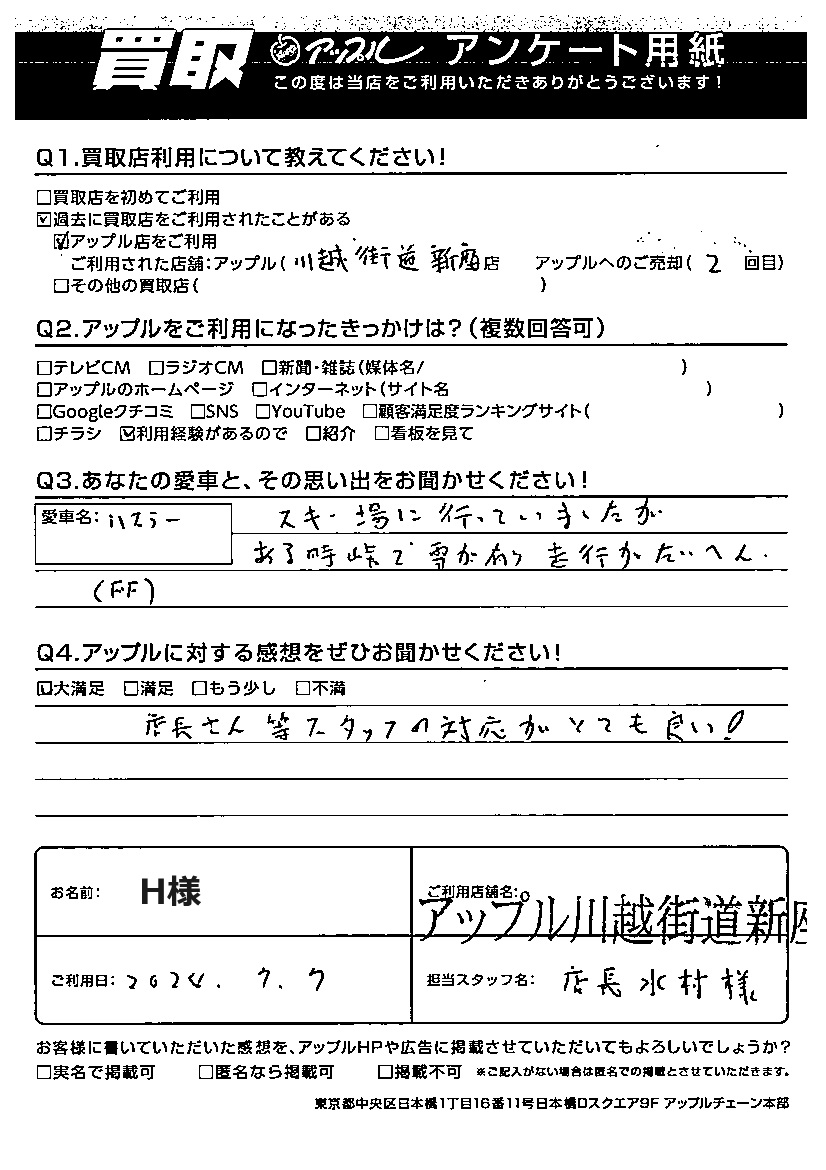 買取 アップル アンケート用紙
この度は当店をご利用いただきありがとうございます!
Q1.買取店利用について教えてください!
□買取店を初めてご利用
☑過去に買取店をご利用されたことがある
☑アップル店をご利用
ご利用された店舗:アップル(川越街道新座店 アップルへのご売却(2 回目)
□その他の買取店( )
Q2.アップルをご利用になったきっかけは?(複数回答可)
□テレビCM □ラジオCM □新聞・雑誌(媒体名/ )
□アップルのホームページ □インターネット(サイト名 )
□Googleクチコミ □SNS □YouTube □顧客満足度ランキングサイト( )
□チラシ ☑利用経験があるので □紹介 □看板を見て
Q3.あなたの愛車と、その思い出をお聞かせください!
愛車名:ハスラー スキー場に行っていましたが
ある時峠で雪があり走行がたいへん.
(FF)
Q4.アップルに対する感想をぜひお聞かせください!
☑大満足 □満足 □もう少し □不満
店長さん等スタッフの対応がとても良い!
お名前: H様 ご利用店舗名:
アップル川越街道新座
ご利用日:2024.7.7 担当スタッフ名: 店長水村様
お客様に書いていただいた感想を、アップルHPや広告に掲載させていただいてもよろしいでしょうか?
□実名で掲載可 □匿名なら掲載可 □掲載不可 ※ご記入がない場合は匿名での掲載とさせていただきます。
東京都中央区日本橋1丁目16番11号日本橋Dスクエア9F アップルチェーン本部